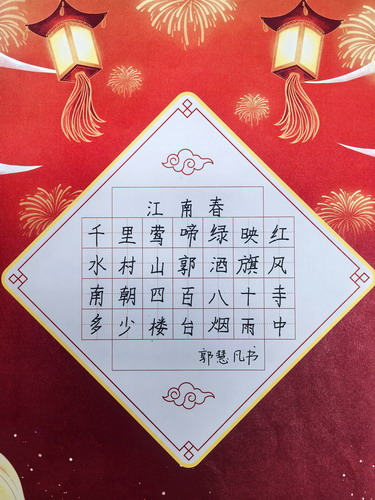 江南春
千里莺啼绿映红
水村山郭酒旗风
南朝四百八十寺
多少楼台烟雨中
郭慧凡书